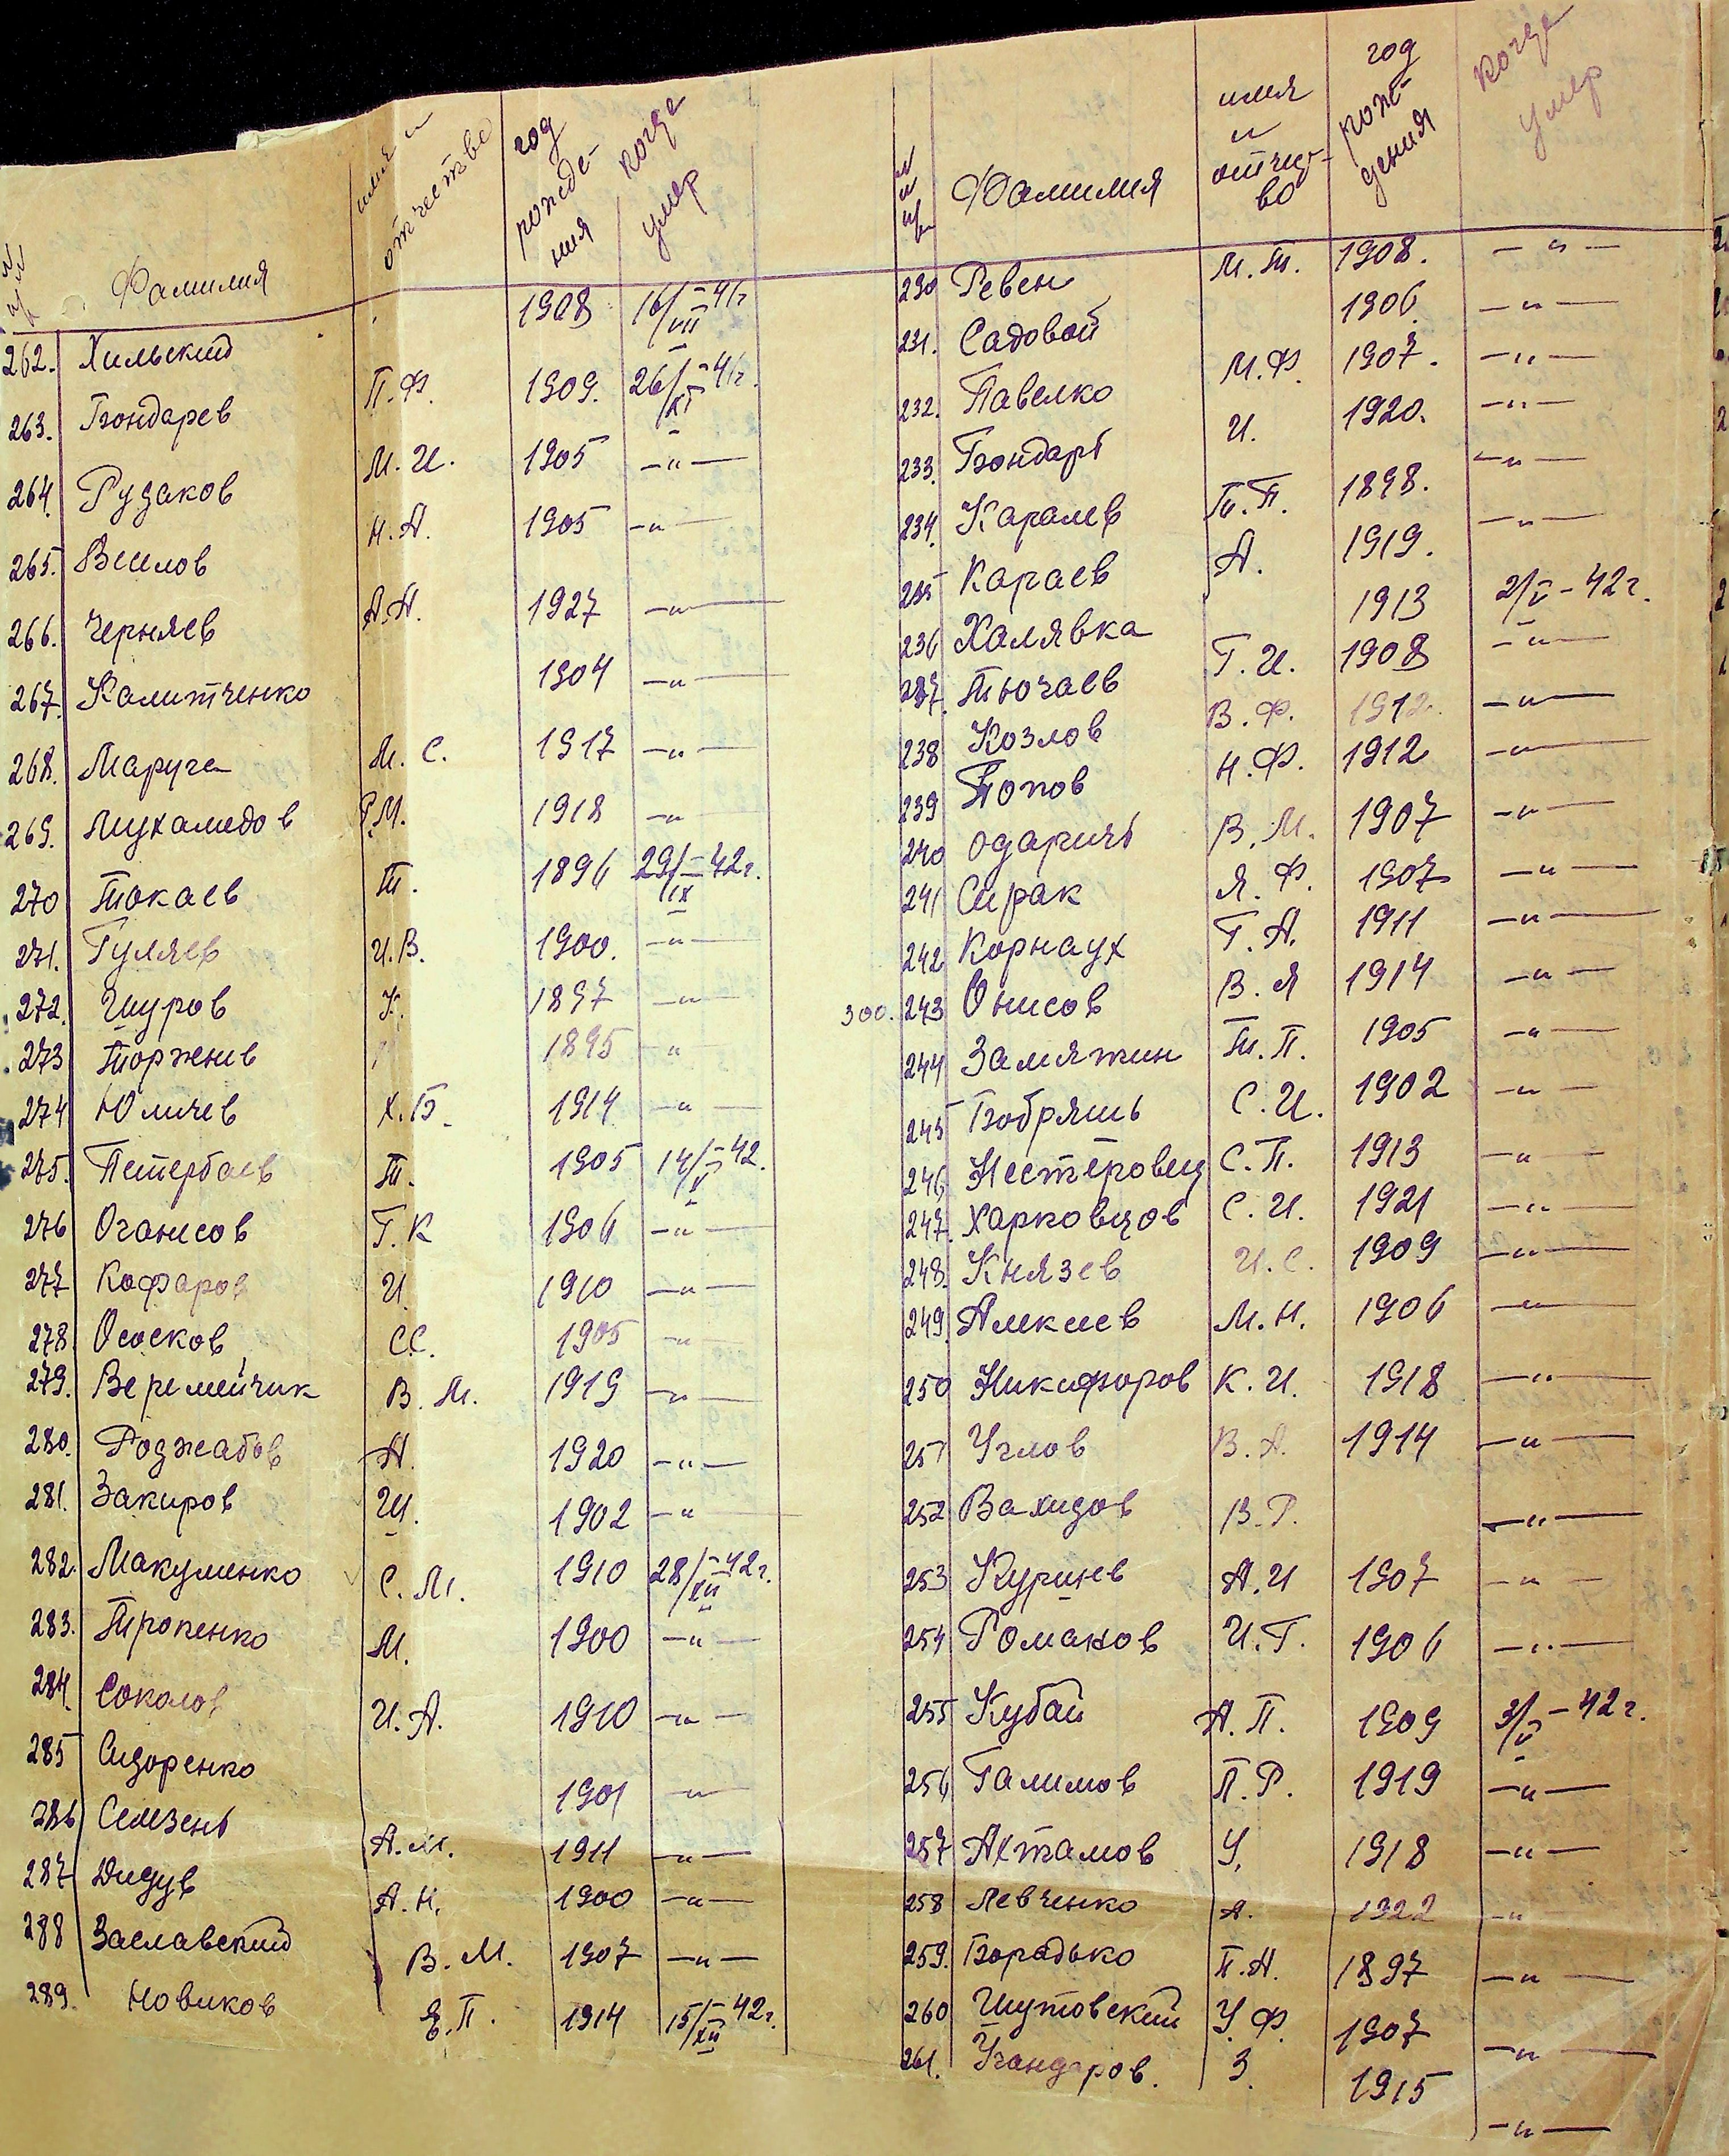 №№ п/п Фамилия имя и отчество год рожде-ния когда умер
262. Хильский 1908 16/VII-41г
263. Бондарев П.Ф. 1909. 26/XI-41г.
264. Рудаков М.И. 1905 -"-
265. Веслов Н.А. 1905 -"-
266. Черняев А.А. 1927 -"-
267. Калитченко 1904 -"-
268. Маруга М.С. 1917 -"-
269. Мухамедов Р.М. 1918 -"-
270 Токаев Т. 1896 29/IX-42г.
271. Гуляев И.В. 1900. -"-
272. Шуров К. 1897 -"-
273 Торжнев 1895 -"-
274 Юличев Х.Б. 1914 -"-
275. Петербаев Т. 1905 14/V-42.
276 Оганисов Г.К 1906 -"-
277 Кафаров И. 1910 -"-
278. Ососков С.С. 1905 -"-
279. Веремейчик В.М. 1919 -"-
280. Роджабов А. 1920 -"-
281. Закиров Ш. 1902 -"-
282. Макуменко С.М. 1910 28/XII-42г.
283. Тропенко М. 1900 -"-
284. Соколов И.А. 1910 -"-
285 Сидоренко
286 Селезень 1901 -"-
287 Дидув А.М. 1911 -"-
288 Заславский А.Н. 1900 -"-
289. Новиков В.М. 1907 -"-
Е.П. 1914 15/XII-42г.
№№ п/п Фамилия имя и отчест-во год рож-дения когда умер
230 Ревен М.Т. 1908. -"-
231. Садовой 1906. -"-
232. Павелко М.Ф. 1907. -"-
233. Бондарь И. 1920. -"-
234. Каралев Т.П. 1898. -"-
235 Караев А. 1919. -"-
236 Халявка 1913 2/V-42г.
237. Тючаев Г.И. 1908 -"-
238 Козлов В.Ф. 1912. -"-
239 Попов Н.Ф. 1912 -"-
240 Одаричь В.М. 1907 -"-
241 Сирак Я.Ф. 1907 -"-
242 Корнаух Г.А. 1911 -"-
300. 243 Онисов В.Я 1914 -"-
244 Замяткин Т.П. 1905 -"-
245 Бобряшь С.И. 1902 -"-
246 Нестеровец С.П. 1913 -"-
247. Харковцов С.И. 1921 -"-
248. Князев И.С. 1909 -"-
249. Алекеев М.Н. 1906 -"-
250 Никифоров К.И. 1918 -"-
251 Углов В.А. 1914 -"-
252 Вахидов В.Р. -"-
253 Куришев А.И 1907 -"-
254 Романов И.Г. 1906 -"-
255 Кубай А.П. 1909 3/V-42г.
256 Галимов П.Р. 1919 -"-
257 Ахтамов У. 1918 -"-
258 Левченко А. 1922 -"
259. Борадько П.А. 1897 -"-
260 Шутовский У.Ф. 1907 -"-
261. Угандаров. З. 1915 -"-